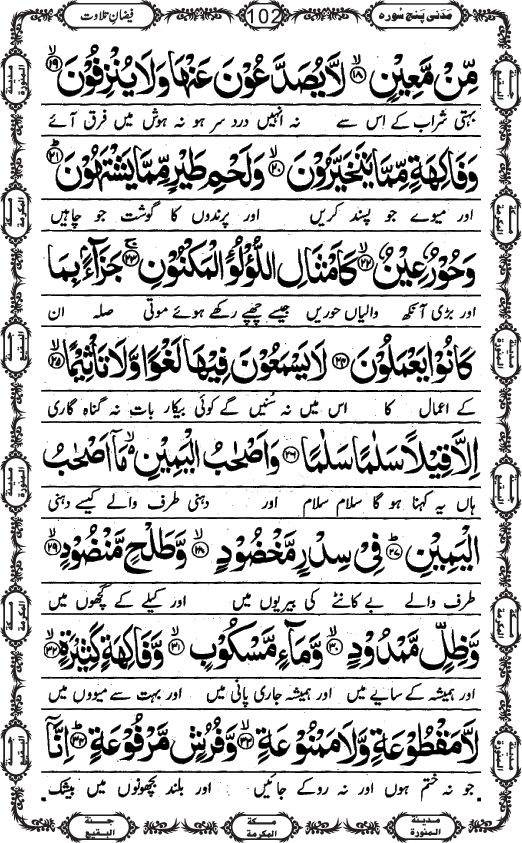 مَدَنی پَنج سُورہ
102
فیضانِ تلاوت
مِّنْ مَّعِیْنٍۙ۱۸ لَّا یُصَدَّعُوْنَ عَنْهَا وَ لَا یُنْزِفُوْنَۙ۱۹
بہتی شراب کے اس سے نہ انہیں درد سر ہو نہ ہوش میں فرق آئے
وَ فَاكِهَةٍ مِّمَّا یَتَخَیَّرُوْنَۙ۲۰ وَ لَحْمِ طَیْرٍ مِّمَّا یَشْتَهُوْنَؕ۲۱
اور میوے جو پسند کریں اور پرندوں کا گوشت جو چاہیں
وَ حُوْرٌ عِیْنٌۙ۲۲ كَاَمْثَالِ اللُّؤْلُوٴِ الْمَكْنُوْنِۚ۲۳ جَزَآءًۢ بِمَا
اور بڑی آنکھ والیاں حوریں جیسے چھپے رکھے ہوئے موتی صلہ ان
كَانُوْا یَعْمَلُوْنَ۲۴ لَا یَسْمَعُوْنَ فِیْهَا لَغْوًا وَّ لَا تَاْثِیْمًاۙ۲۵
کے اعمال کا اس میں نہ سُنیں گے کوئی بیکار بات نہ گناہ گاری
اِلَّا قِیْلًا سَلٰمًا سَلٰمًا۲۶ وَ اَصْحٰبُ الْیَمِیْنِۙ۬ مَاۤ اَصْحٰبُ
ہاں یہ کہنا ہو گا سلام سلام اور دہنی طرف والے کیسے دہنی
الْیَمِیْنِؕ۲۷ فِیْ سِدْرٍ مَّخْضُوْدٍۙ۲۸ وَّ طَلْحٍ مَّنْضُوْدٍۙ۲۹
طرف والے بے کانٹے کی بیریوں میں اور کیلے کے گچھوں میں
وَّ ظِلٍّ مَّمْدُوْدٍۙ۳۰ وَّ مَآءٍ مَّسْكُوْبٍۙ۳۱ وَّ فَاكِهَةٍ كَثِیْرَةٍۙ۳۲
اور ہمیشہ کے سایے میں اور ہمیشہ جاری پانی میں اور بہت سے میووں میں
لَّا مَقْطُوْعَةٍ وَّ لَا مَمْنُوْعَةٍۙ۳۳ وَّ فُرُشٍ مَّرْفُوْعَةٍؕ۳۴ اِنَّاۤ
جو نہ ختم ہوں اور نہ روکے جائیں اور بلند بچھونوں میں بیشک
مدینة المنورة
مكة المكرمة
جنة البقيع
مدینة المنورة
مكة المكرمة
جنة البقيع
جنة البقيع
مكة المكرمة
مدینة المنورة
جنة البقيع
مكة المكرمة
مدینة المنورة
جنة البقيع
مكة المكرمة
مدینة المنورة